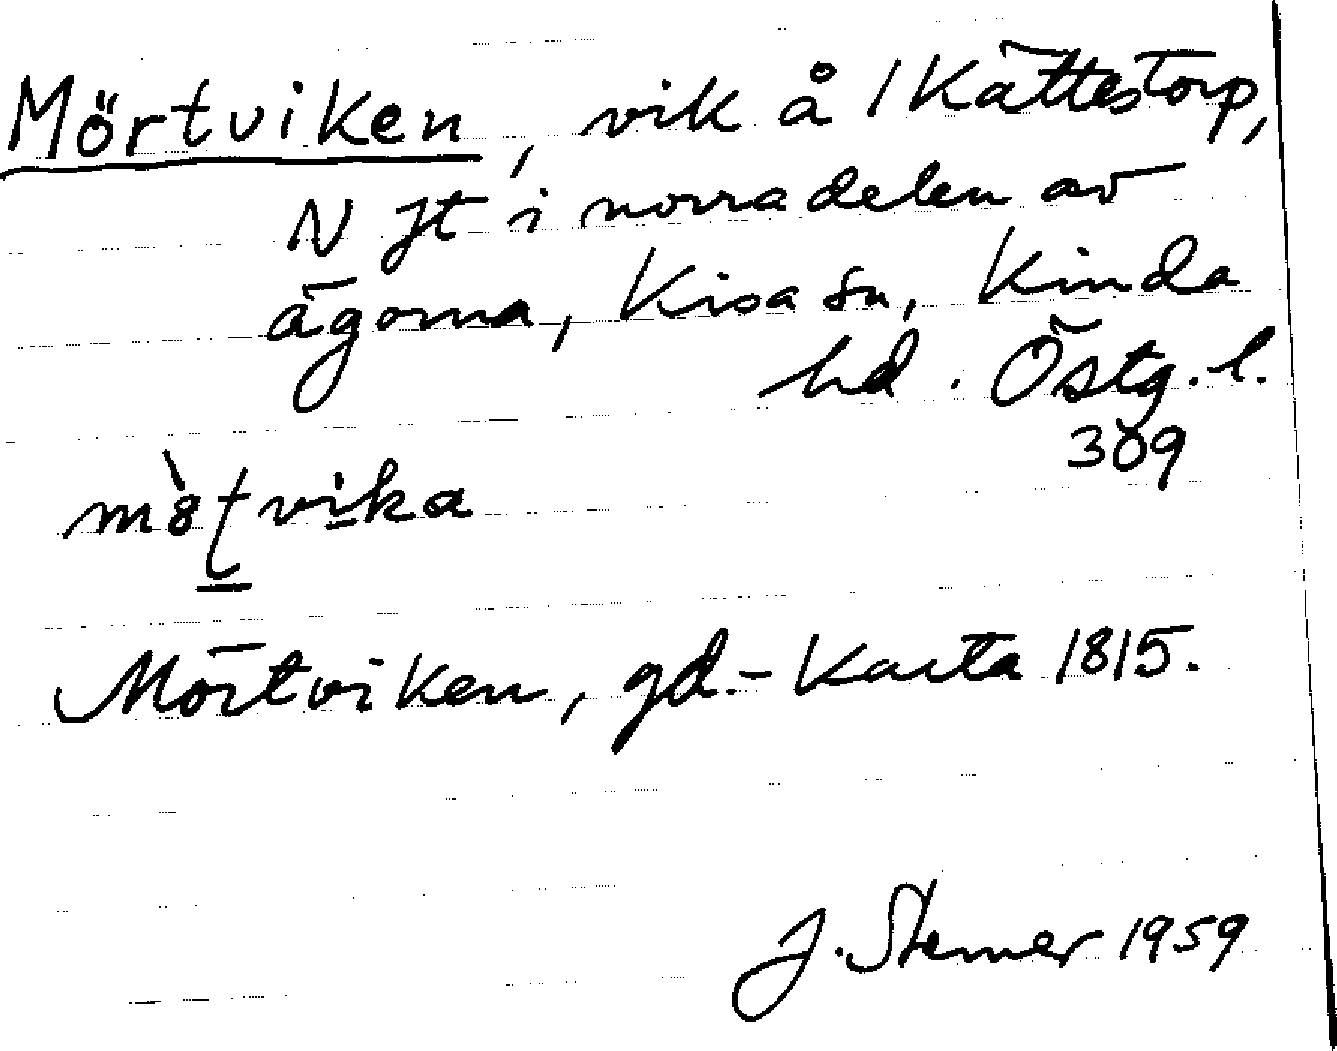 Mörtviken, vik å 1 Kättestorp,
N Jt i norra delen av
ägorna, Kisa sn, Kinda
hd. Östg. l.
309
Mörtviken, gd.- Karta 1815.
J. Sterner 1959